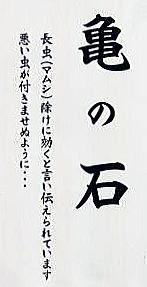 亀の石
長虫（マムシ）除けに効くと言い伝えられています
悪い虫が付きませぬように・・・